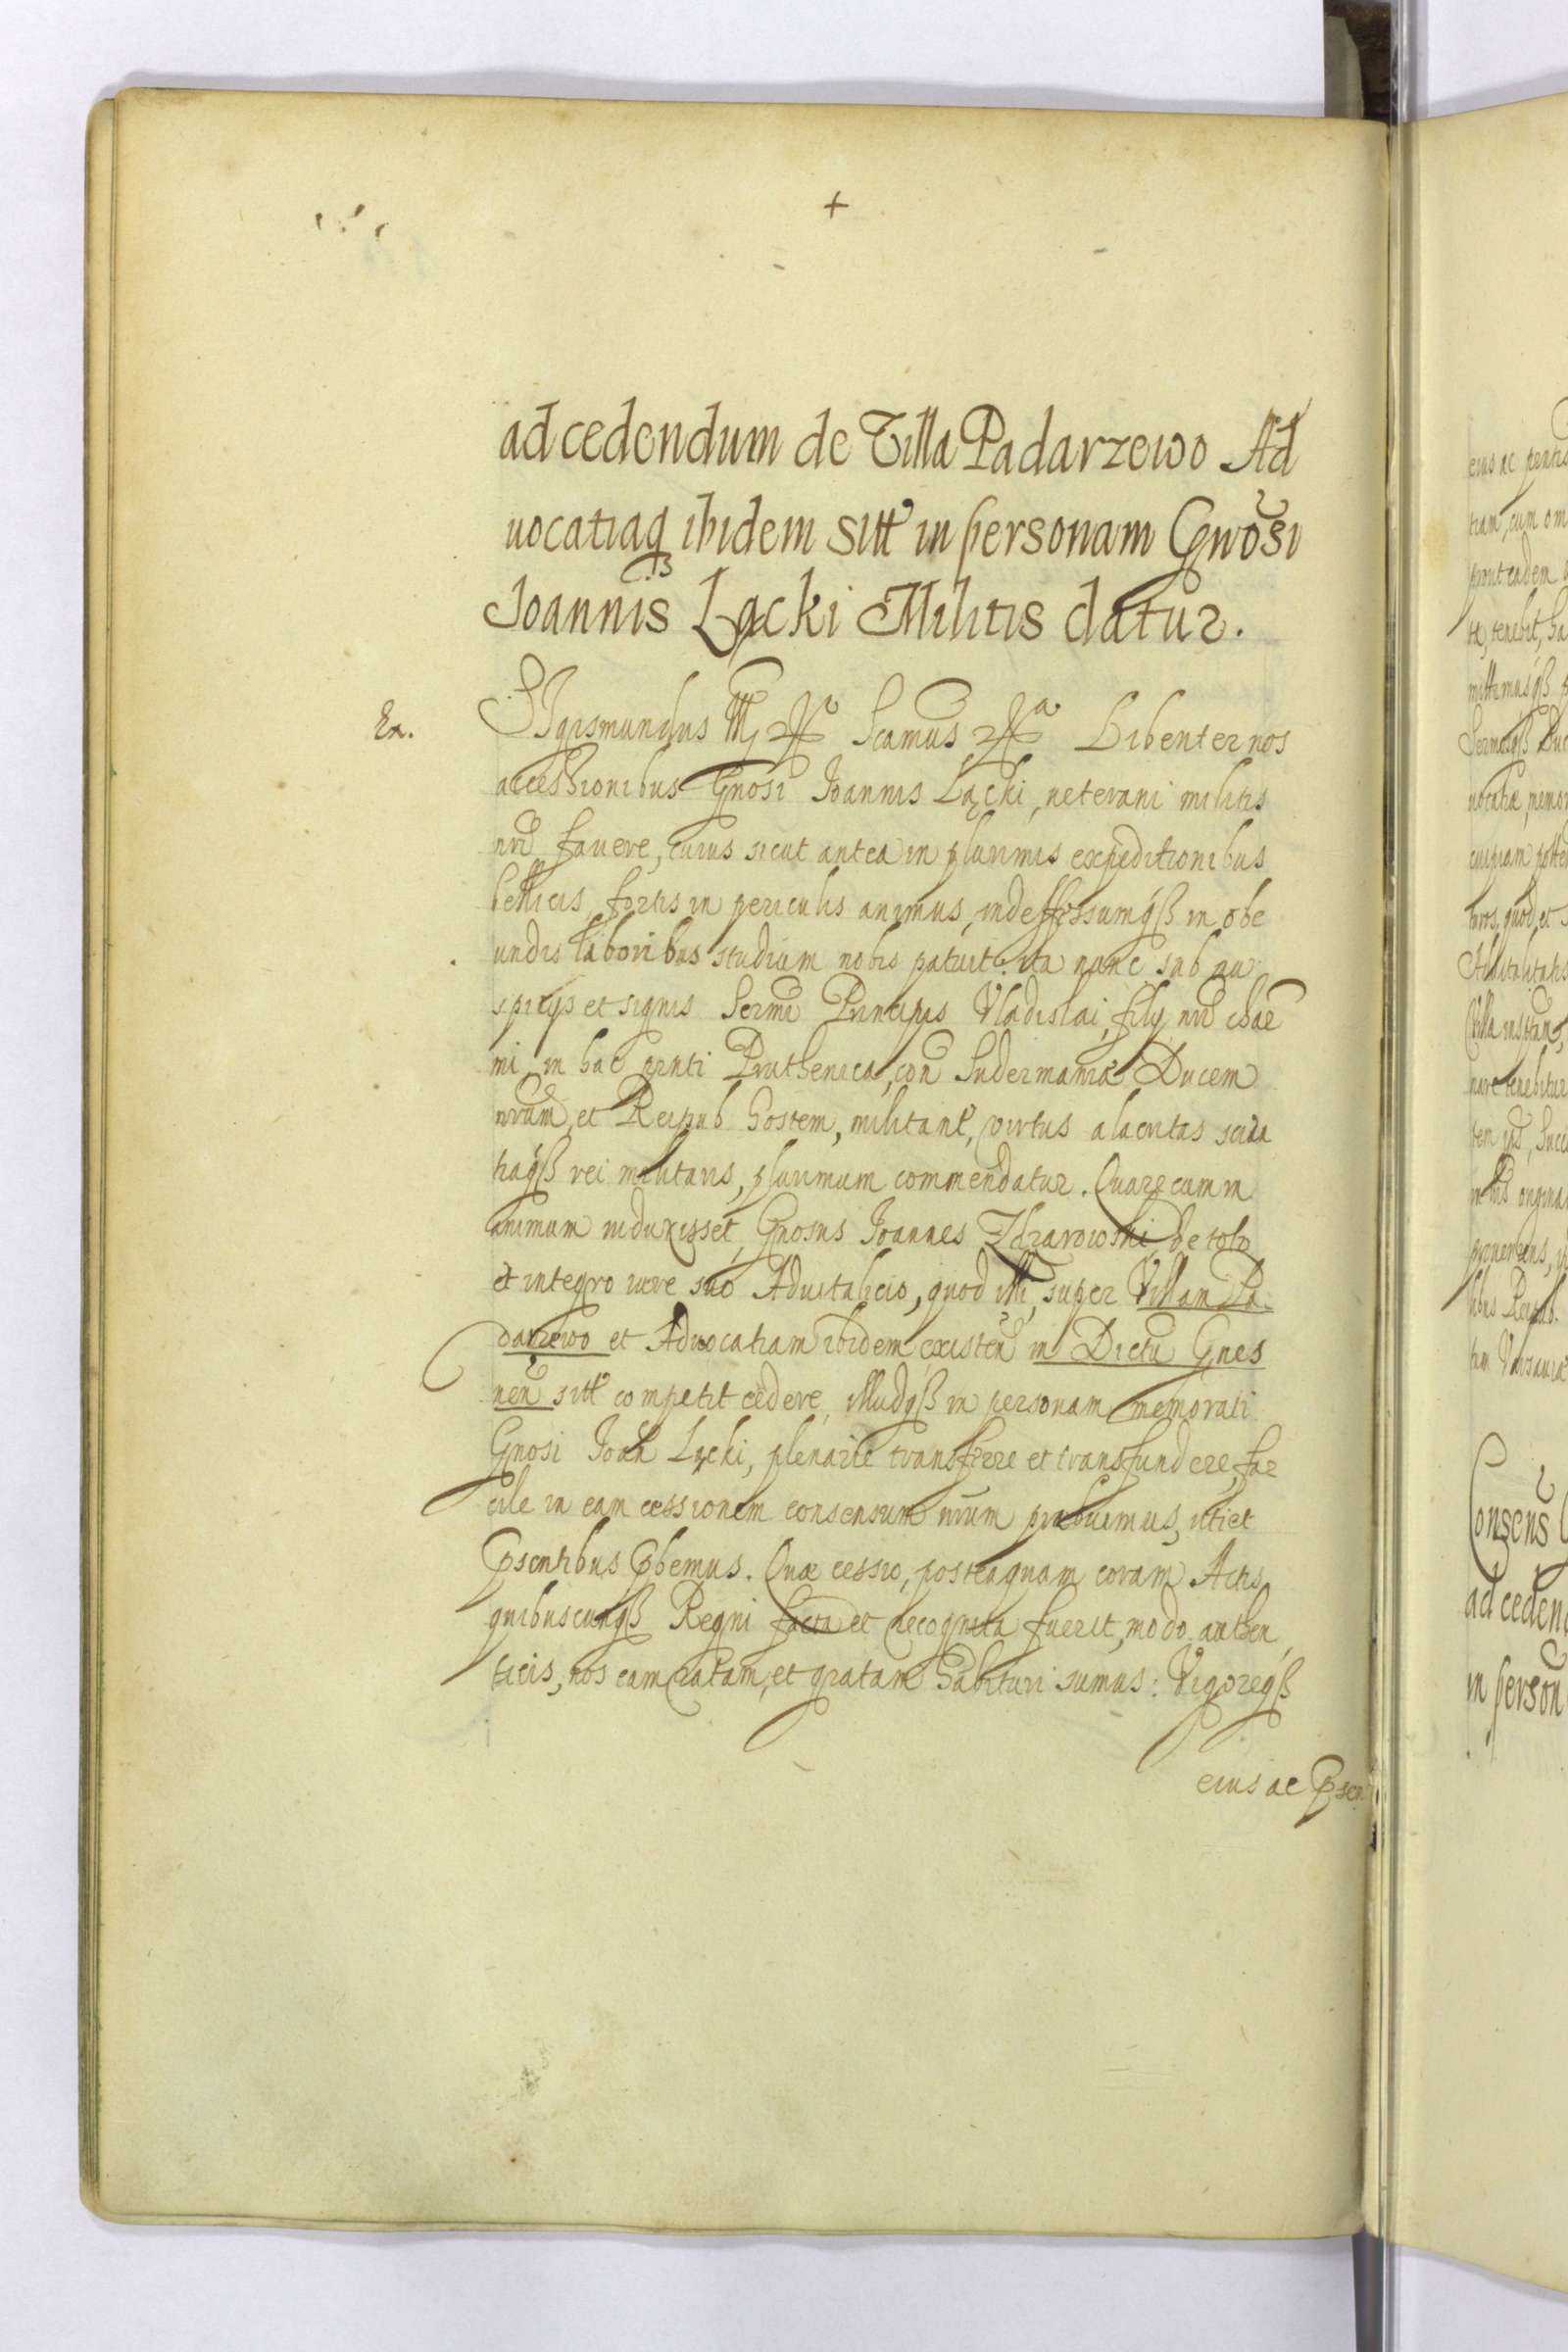 +
ad cedendum de Villa Padarzewo Ad
uocatiaqß ibidem sitt in personam Gnosi
Joannis Łącki Militis datur.
Ex.
SIgismundus III Scamus Libenter nos
accessionibus Gnosi Joannis Łącki, ueterani militis
nri fauere, cuius sicut antea in plurimis expeditionibus
bellicis fortis in periculis animus, indeffessumqß in obe
undis laboribus studium nobis patuit: ita nunc sub au
spicijs et signis Sermi Principis Vladislai, filij nri chae
mi, in hac prnti Pruthenica, con Sudermaniæ Ducem
nrum, et Reipub hostem, militant, virtus alacritas scien
tiaqß rei militaris, plurimum commendatur. Quare cum in
animum induxisset, Gnosus Joannes Zdzarowski, de toto
et integro iure suo Aduitalicio, quod illi, super Villam Pa
darzewo et Aduocatiam ibidem existen in Dictu Gnes
nen sitt competit cedere, illudqß in personam memorati
Gnosi Joan Łącki, plenarie transferre et transfundere, fa
cile in eam cessionem consensum nrum præbuimus, uti et
psentibus pbemus. Quæ cessio, posteaquam coram Actis
quibuscunqß Regni facta et recognita fuerit, modo authen
ticis, nos eam ratam, et gratam habituri sumus: Vigoreqß
eius ac psen
eius ac
tiam, cum om
prout eadem
tæ, tenebit, ha
mittimusqß
Sermosqß Duc
uocatiæ
turos, quod et
Aduitalitatis
Villa
nare tenebitur
Consens
ad ceden
in person